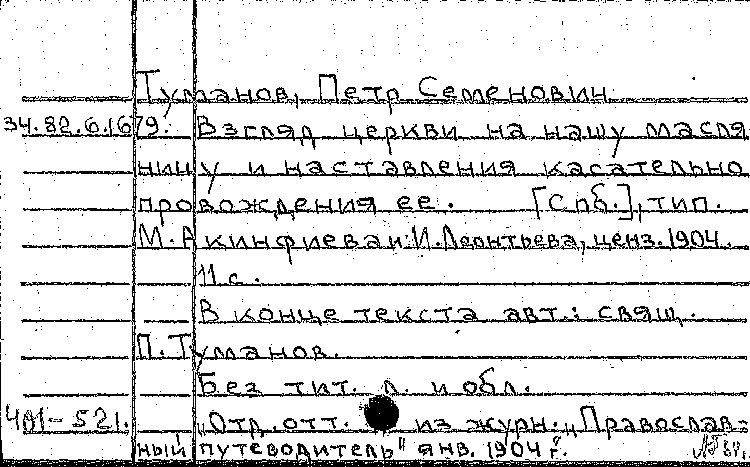 Туманов, Петр Семенович
34.82.6.1679. Взгляд церкви на нашу масля
ницу и наставления касательно
провождения ее. [Спб.], тип.
М. Акинфиева и И. Леонтьева, ценз. 1904.
11 с.
В конце текста авт.: свящ.
П. Туманов.
Без тит. л. и обл.
401-521. "Отд. отт. из журн. "Православ-
ный путеводитель" янв. 1904 г."